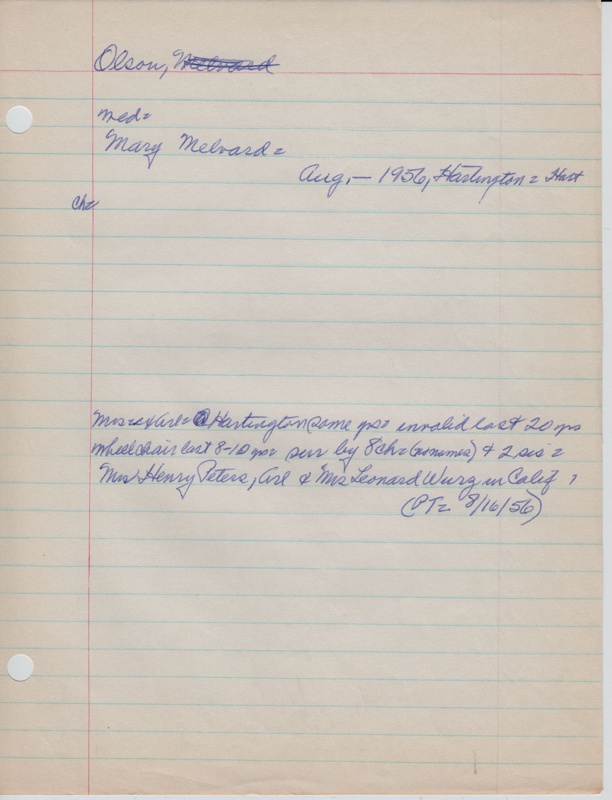 Olson, Melvard
med=
Mary Melvard=
Aug. — 1956, Hartington = Hart
ch=
Mrs= Arl= Hartington some yrs= invalid last 20 yrs
wheelchair last 8-10 yrs= surv by 8ch= (no names) & 2 sis=
Mrs Henry Peters, Arl & Mrs Leonard Wurz in Calif
(PT= 8/16/56)